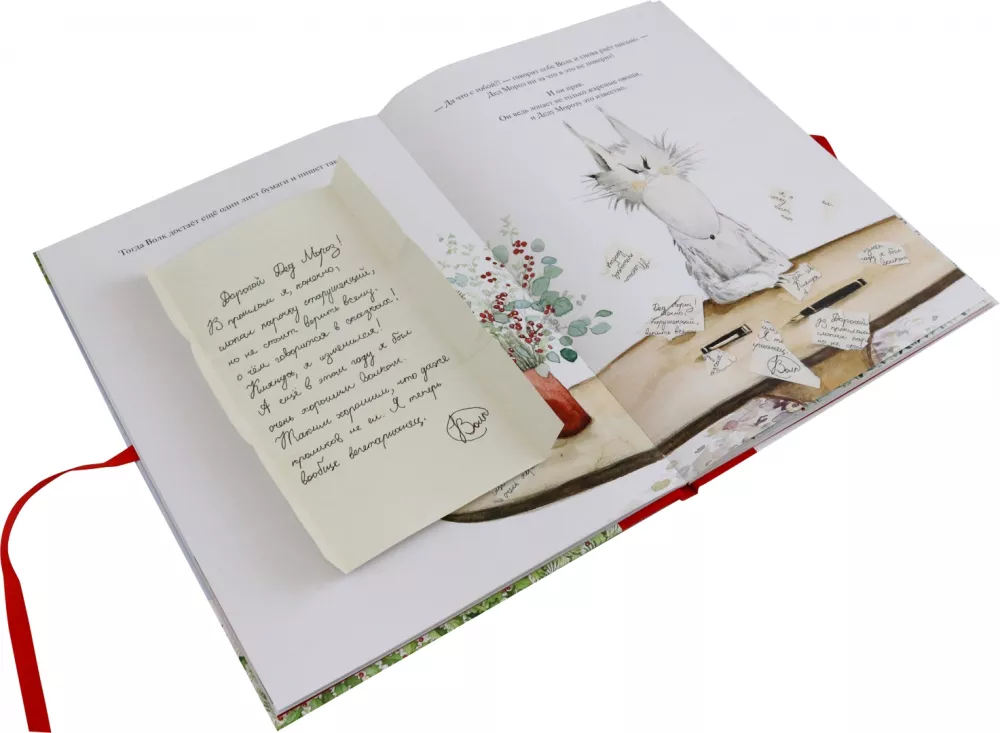 Тогда Волк достаёт ещё один лист бумаги и пишет так
Дорогой Дед Мороз!
В прошлом я, конечно,
шопал парочку старушенций,
но не стоит верить всему,
о чём говорится в сказках!
Клянусь, я изменился!
А ещё в этом году я был
очень хорошим волком.
Таким хорошим, что даже
кроликов не ел. Я теперь
вообще вегетарианец.
Волк
— Да что с тобой?! — говорит себе Волк и снова рвёт письмо. —
Дед Мороз ни за что в это не поверит!
И он прав.
Он ведь лопает не только жареные овощи,
и Деду Морозу это известно.
Дед Мороз!
верить все
Дорогой
Волк